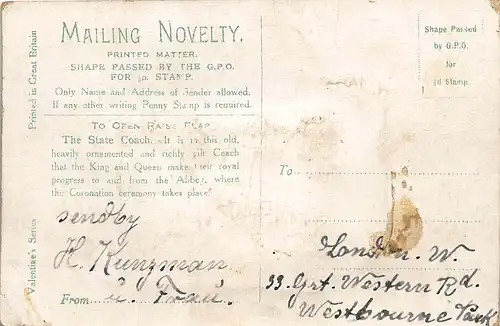 Printed in Great Britain
Valentine's Series
MAILING NOVELTY.
PRINTED MATTER.
SHAPE PASSED BY THE G.P.O.
FOR ½D. STAMP.
Only Name and Address of Sender allowed.
If any other writing Penny Stamp is required.
TO OPEN RAISE FLAP
The State Coach. It is in this old,
heavily ornamented and richly gilt Coach
that the King and Queen make their royal
progress to and from the Abbey, where
the Coronation ceremony takes place.
sendby
H. Kunzman
From u. Frau.
Shape Passed
by G.P.O.
for
½d Stamp.
To
London. W.
33. Grt. Western Rd.
Westbourne Park